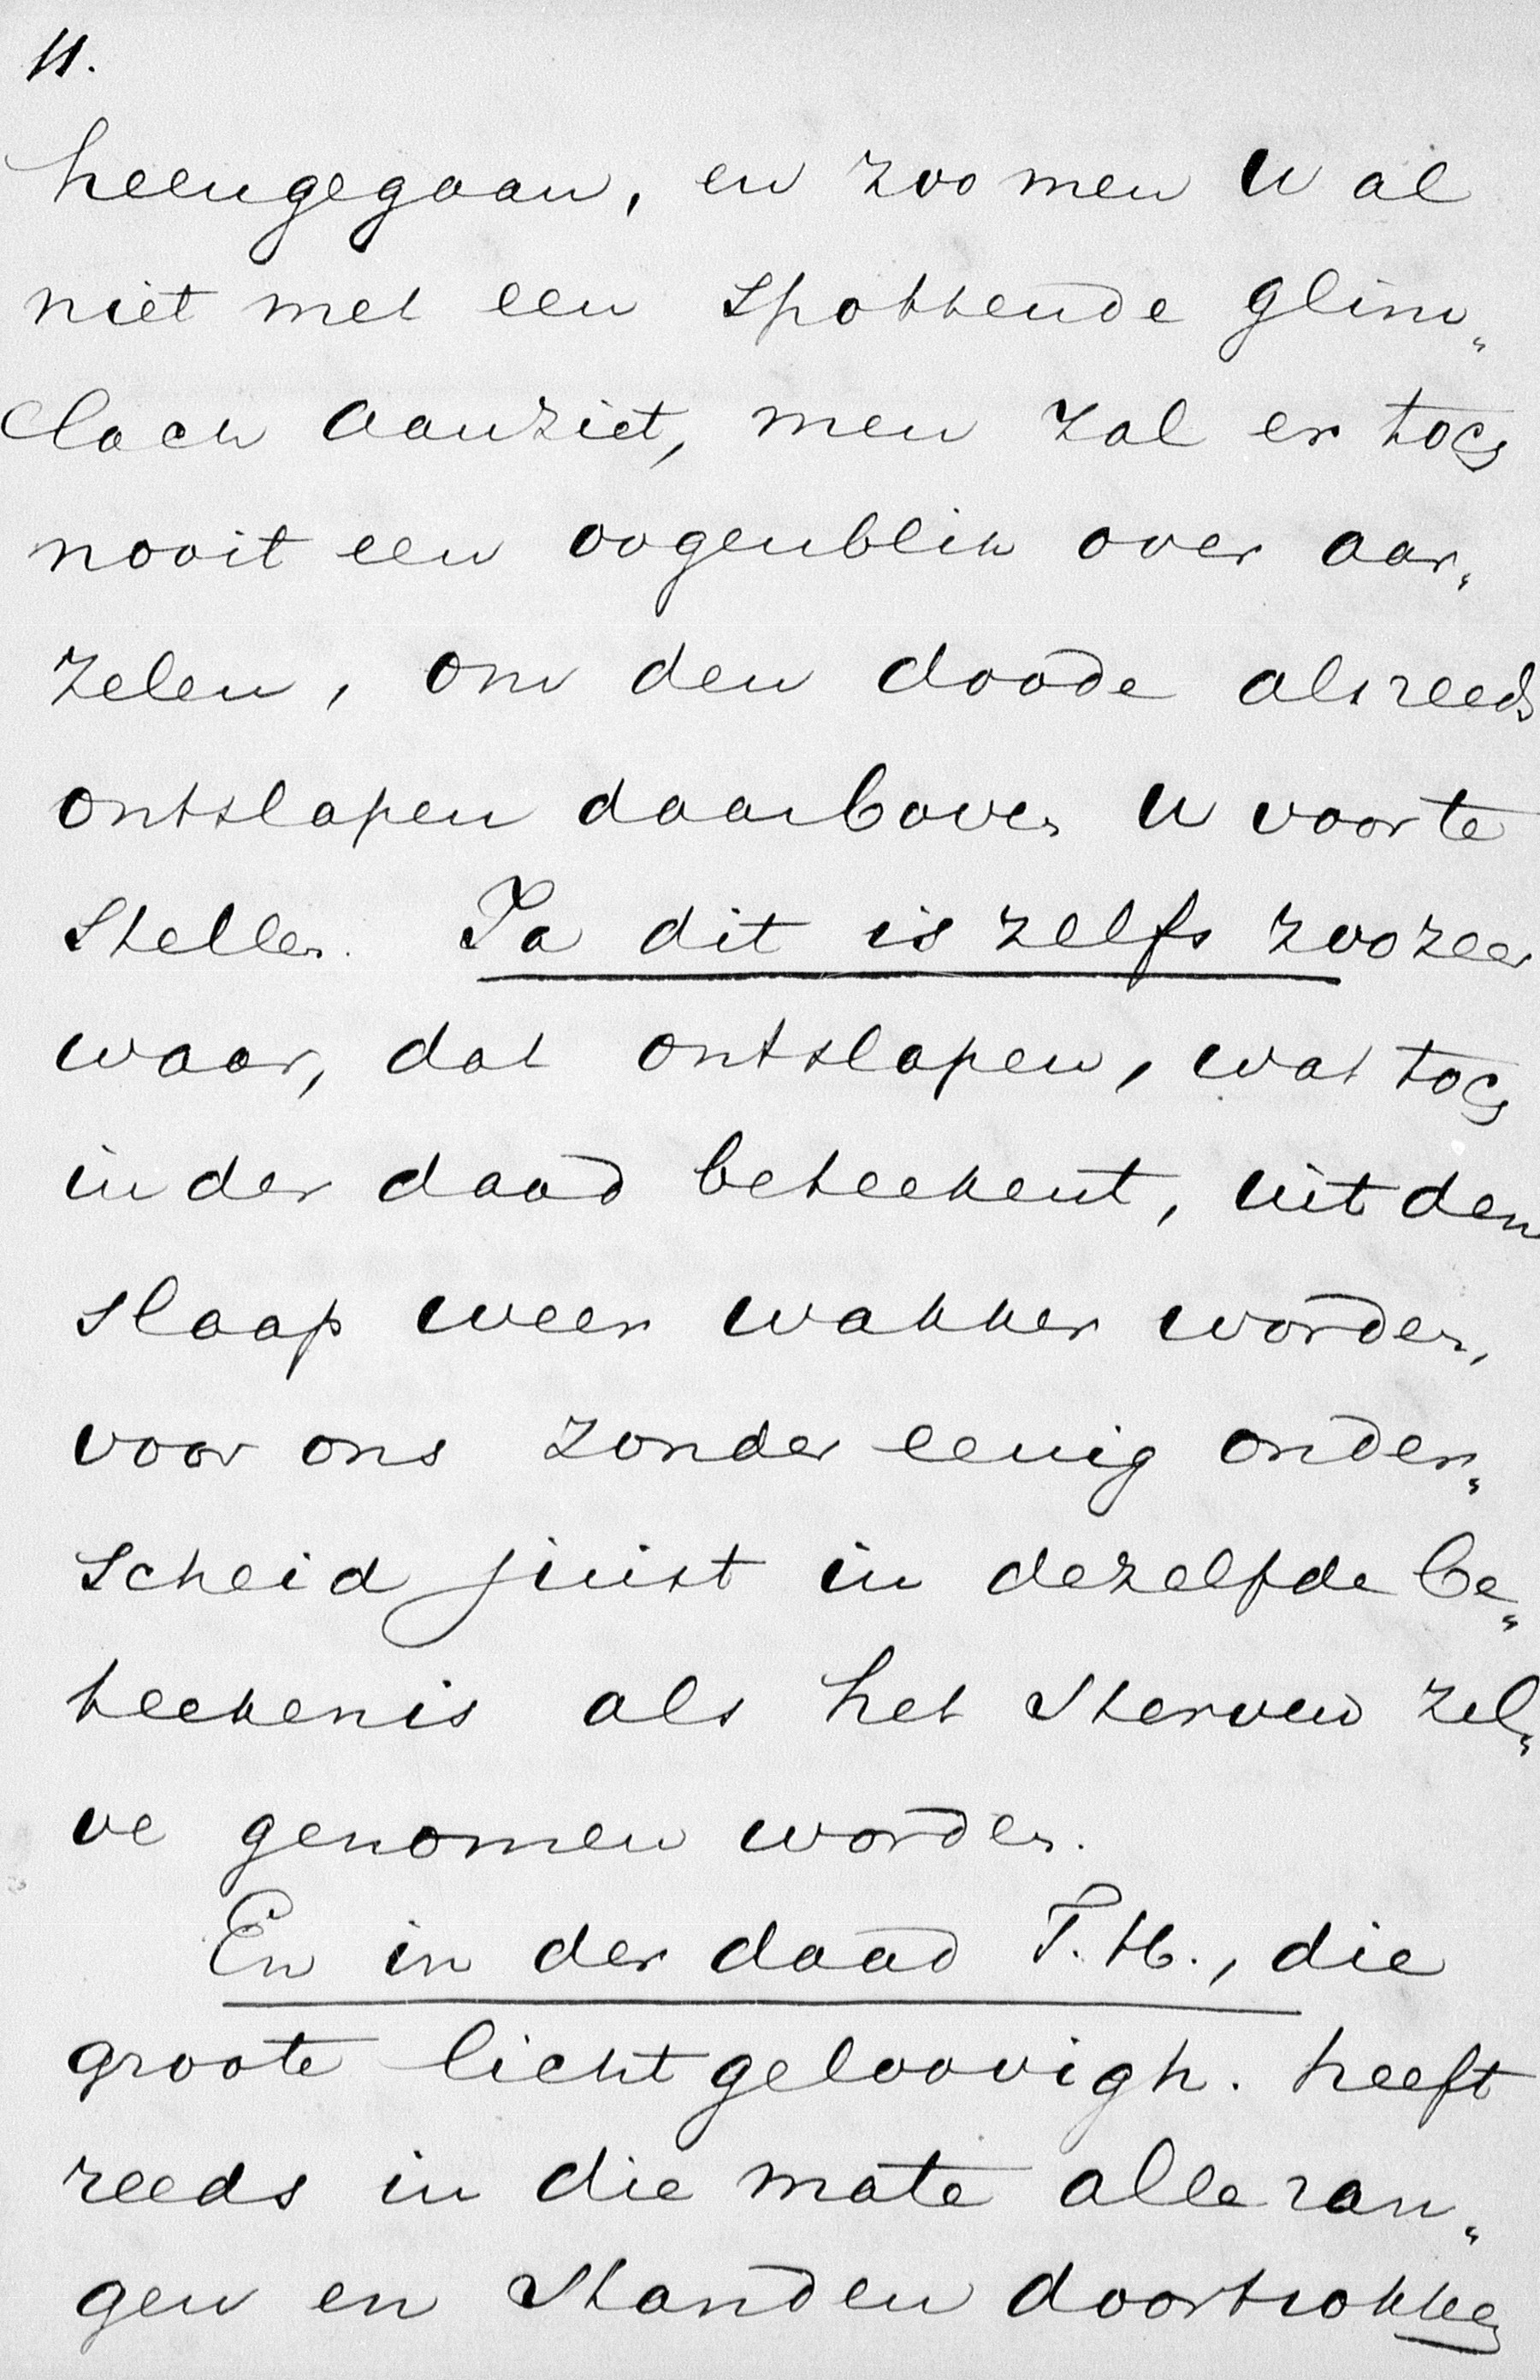 11.
heengegaan, en zoo men U al
niet met een spottende glim„
lach aanziet, men zal er toch
nooit een oogenblik over aar„
zelen, om den doode als reeds
ontslapen daarboven U voor te
stellen. Ja dit is zelfs zoozeer
waar, dat ontslapen, wat toch
in der daad beteekent, uit den
slaap weer wakker worden,
voor ons zonder eenig onder„
scheid juist in dezelfde be„
teekenis als het sterven zel„
ve genomen worden.
En in der daad T. H., die
groote lichtgeloovigh. heeft
reeds in die mate alle ran„
gen en standen doortrokken